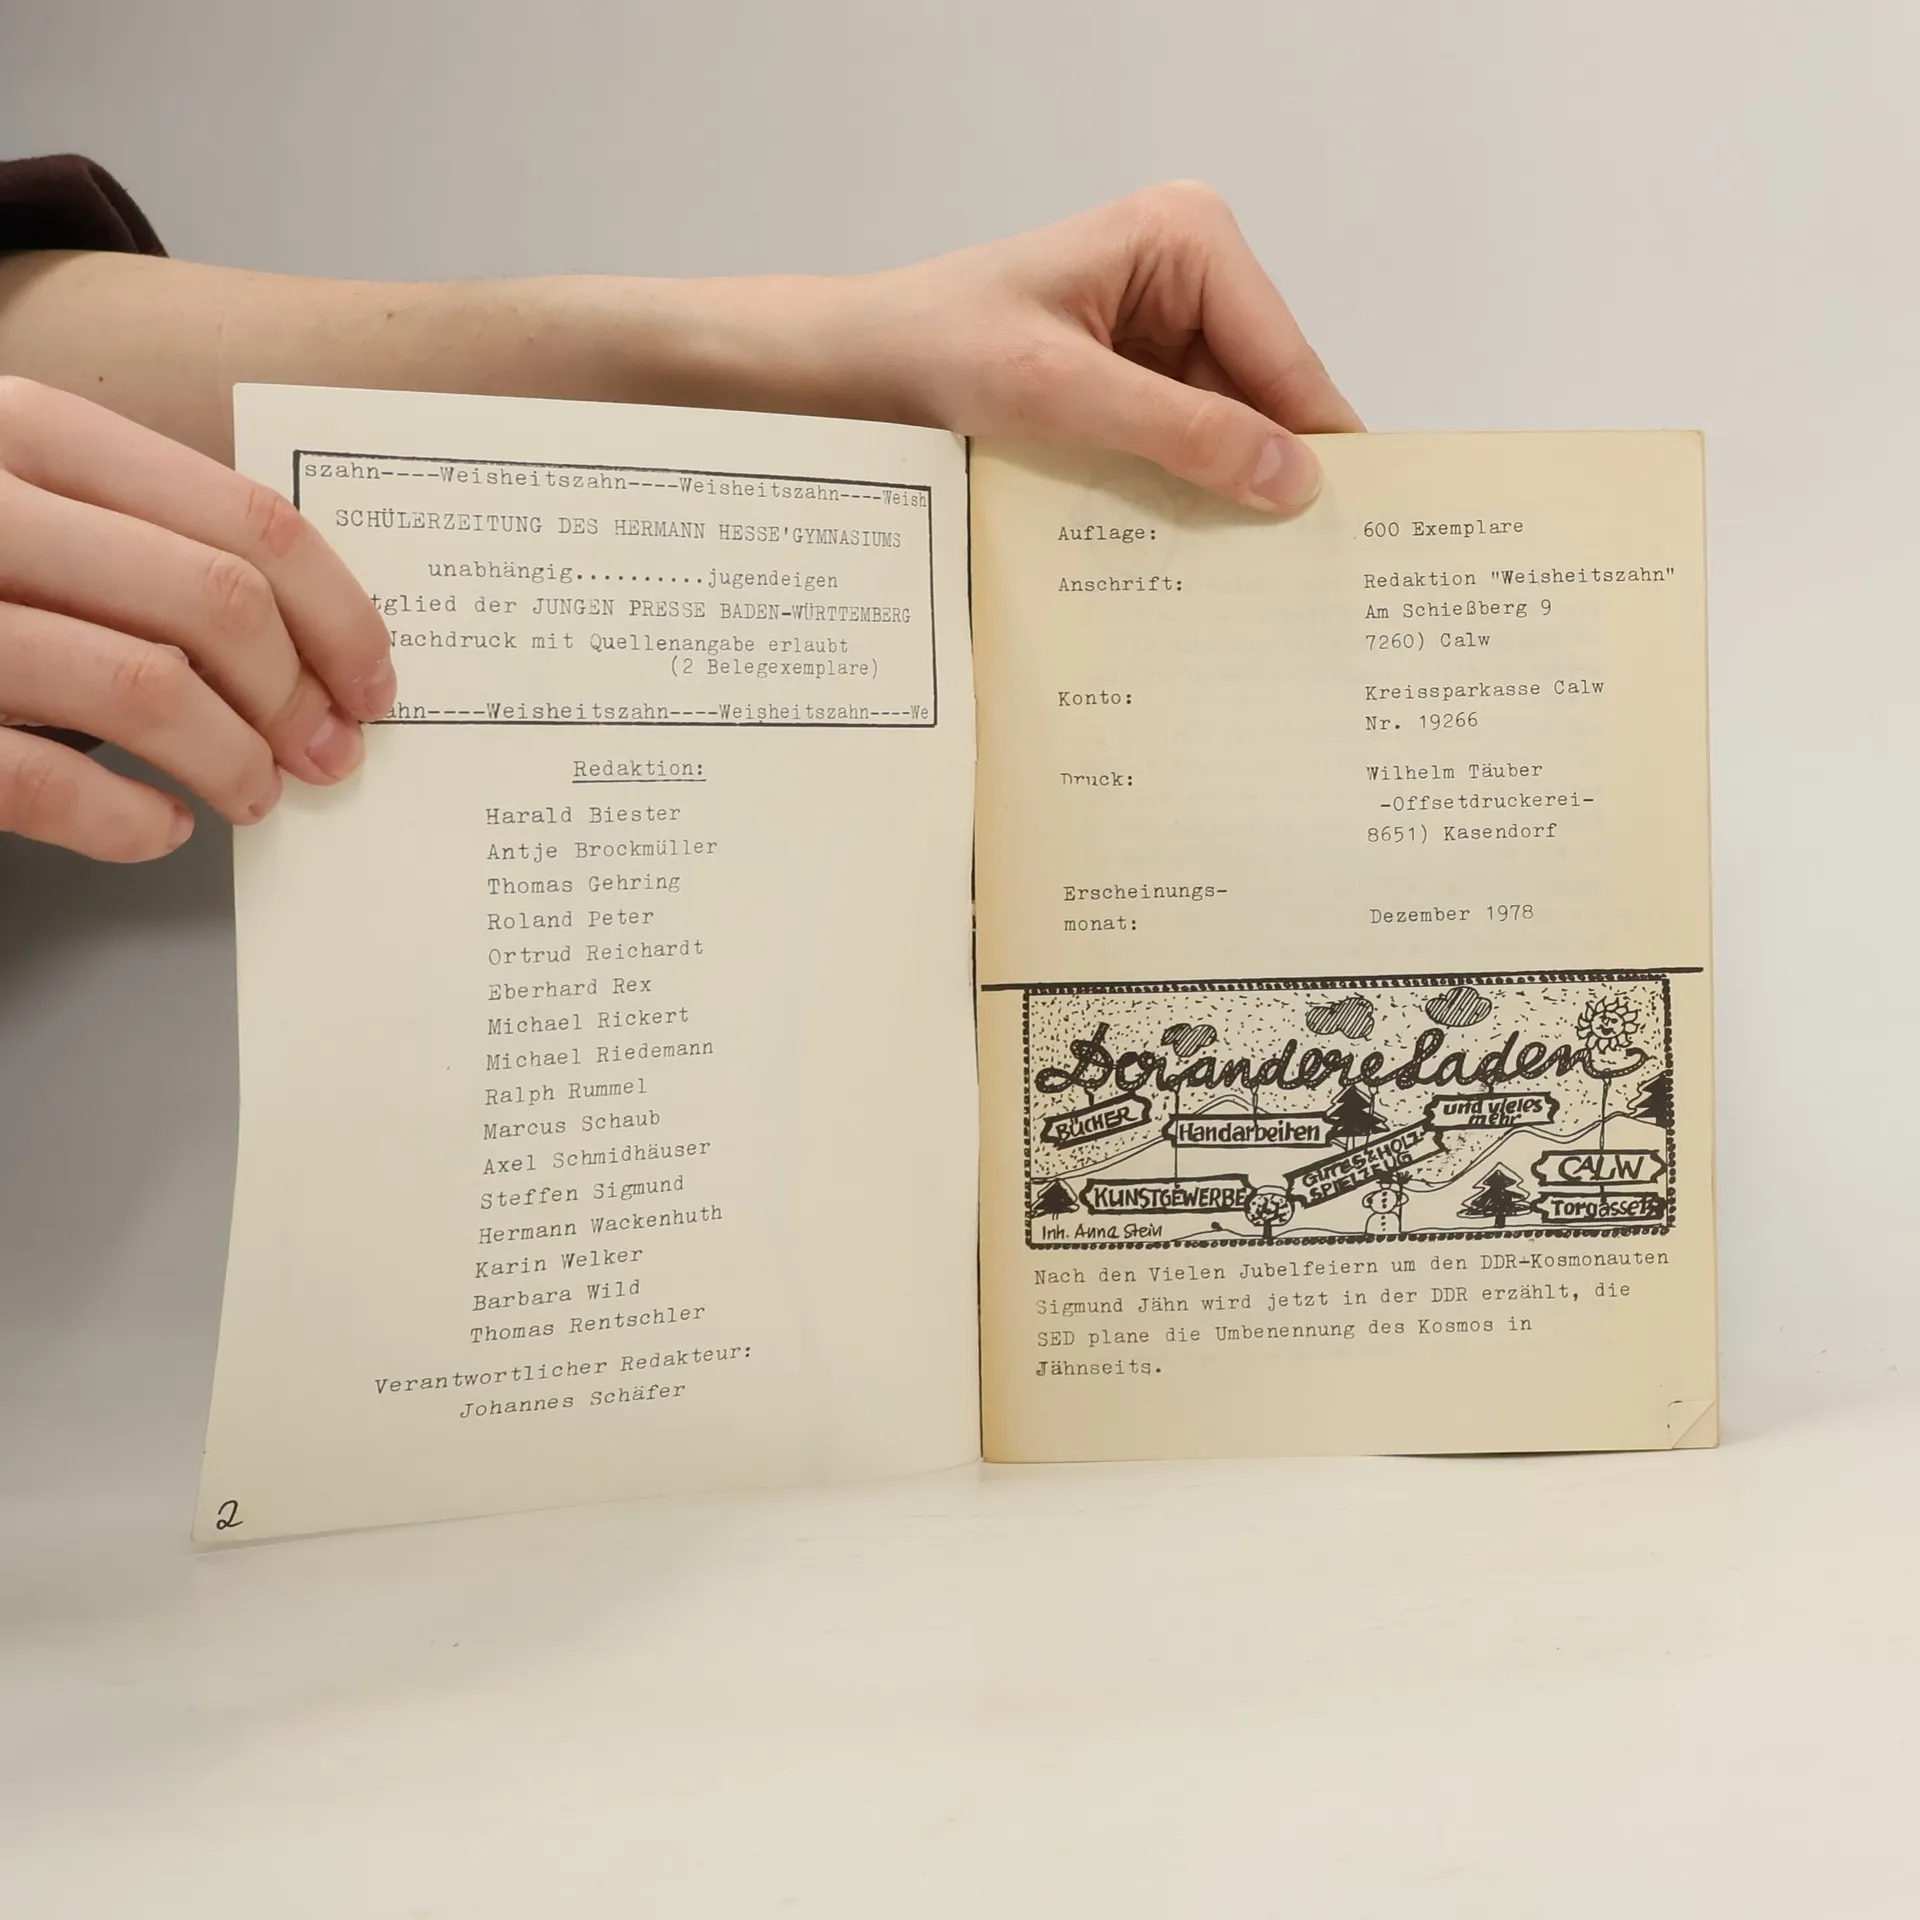 szahn----Weisheitszahn----Weisheitszahn----Weish
SCHÜLERZEITUNG DES HERMANN HESSE'GYMNASIUMS
unabhängig..........jugendeigen
tglied der JUNGEN PRESSE BADEN-WÜRTTEMBERG
Nachdruck mit Quellenangabe erlaubt
(2 Belegexemplare)
ahn----Weisheitszahn----Weisheitszahn----We
Redaktion:
Harald Biester
Antje Brockmüller
Thomas Gehring
Roland Peter
Ortrud Reichardt
Eberhard Rex
Michael Rickert
Michael Riedemann
Ralph Rummel
Marcus Schaub
Axel Schmidhäuser
Steffen Sigmund
Hermann Wackenhuth
Karin Welker
Barbara Wild
Thomas Rentschler
Verantwortlicher Redakteur:
Johannes Schäfer
2
Auflage: 600 Exemplare
Anschrift: Redaktion "Weisheitszahn"
Am Schießberg 9
7260) Calw
Konto: Kreissparkasse Calw
Nr. 19266
Druck: Wilhelm Täuber
-Offsetdruckerei-
8651) Kasendorf
Erscheinungs-
monat: Dezember 1978
Der andere Laden
BÜCHER
Handarbeiten
und vieles
mehr
GUTES & HOLZ-
SPIELZEUG
KUNSTGEWERBE
CALW
Torgasse
Inh. Anna Stein
Nach den Vielen Jubelfeiern um den DDR-Kosmonauten
Sigmund Jähn wird jetzt in der DDR erzählt, die
SED plane die Umbenennung des Kosmos in
Jähnseits.